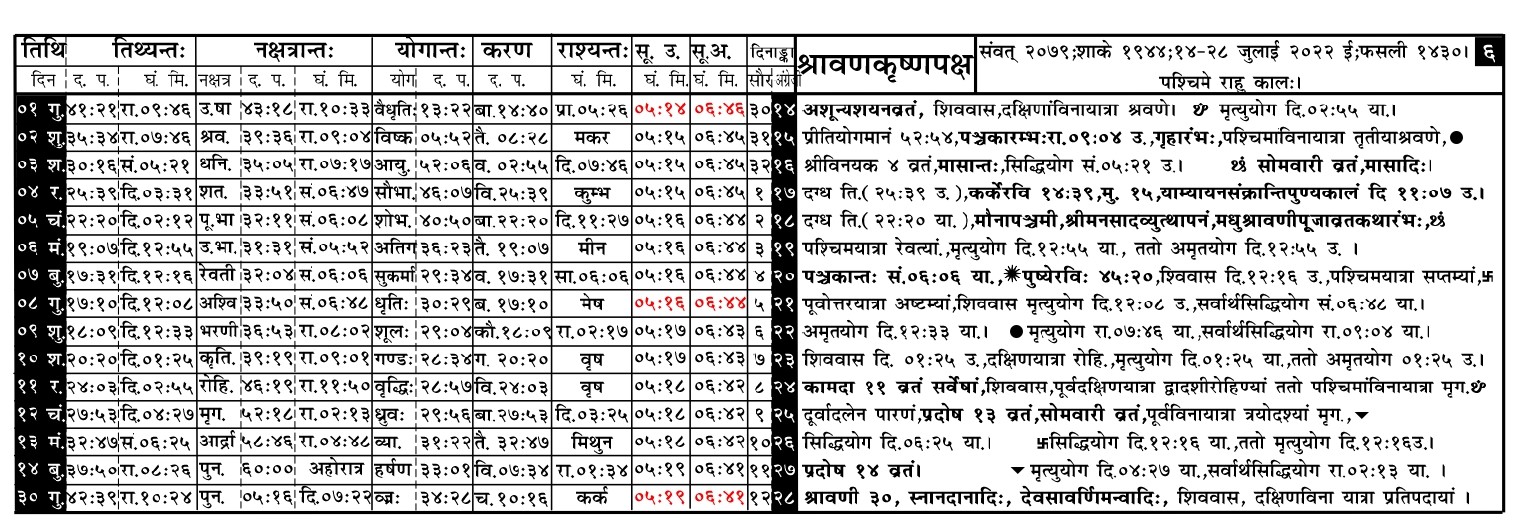 तिथि तिथ्यन्तः नक्षत्रान्तः योगान्तः करण राश्यन्तः सू. उ. सू.अ. दिनाङ्का श्रावणकृष्णपक्ष संवत् २०७९;शाके १९४४;१४-२८ जुलाई २०२२ ई;फसली १४३०। ६
दिन द. प. घं. मि. नक्षत्र द. प. घं. मि. योग द. प. द. प. घं. मि. घं. मि. घं. मि. सौर अंग्रेजी पश्चिमे राहु कालः।
०१ गु. ४१:२१ रा.०९:४६ उ.षा ४३:१८ रा.१०:३३ वैधृतिः १३:२२ बा.१४:४० प्रा.०५:२६ ०५:१४ ०६:४६ ३० १४ अशून्यशयनव्रतं, शिववास,दक्षिणांविनायात्रा श्रवणे। मृत्युयोग दि.०२:५५ या.।
०२ शु. ३५:३४ रा.०७:४६ श्रव. ३९:३६ रा.०९:०४ विष्क ०५:५२ तै. ०८:२८ मकर ०५:१५ ०६:४५ ३१ १५ प्रीतियोगमानं ५२:५४,पञ्चकारम्भःरा.०९:०४ उ.,गृहारंभः,पश्चिमाविनायात्रा तृतीयाश्रवणे,●
०३ श. ३०:१६ सं.०५:२१ धनि. ३५:०५ रा.०७:१७ आयु. ५२:०६ व. ०२:५५ दि.०७:४६ ०५:१५ ०६:४५ ३२ १६ श्रीविनयक ४ व्रतं,मासान्तः,सिद्धियोग सं.०५:२१ उ.। छं सोमवारी व्रतं,मासादिः।
०४ र. २५:३९ दि.०३:३१ शत. ३३:५१ सं.०६:४७ सौभा. ४६:०७ वि.२५:३९ कुम्भ ०५:१५ ०६:४५ १ १७ दग्ध ति.(२५:३९ उ.),कर्केरवि १४:३९,मु. १५,याम्यायनसंक्रान्तिपुण्यकालं दि ११:०७ उ.।
०५ चं. २२:२० दि.०२:१२ पू.भा ३२:११ सं.०६:०८ शोभ. ४०:५० बा.२२:२० दि.११:२७ ०५:१६ ०६:४४ २ १८ दग्ध ति.(२२:२० या.),मौनापञ्चमी,श्रीमनसादव्युत्थापनं,मधुश्रावणीपूजाव्रतकथारंभः,छं
०६ मं. १९:०७ दि.१२:५५ उ.भा. ३१:३१ सं.०५:५२ अतिग ३६:२३ तै. १९:०७ मीन ०५:१६ ०६:४४ ३ १९ पश्चिमयात्रा रेवत्यां,मृत्युयोग दि.१२:५५ या., ततो अमृतयोग दि.१२:५५ उ. ।
०७ बु. १७:३१ दि.१२:१६ रेवती ३२:०४ सं.०६:०६ सुकर्मा २९:३४ व. १७:३१ सा.०६:०६ ०५:१६ ०६:४४ ४ २० पञ्चकान्तः सं.०६:०६ या.,✷पुष्येरविः ४५:२०,श्विवास दि.१२:१६ उ.,पश्चिमयात्रा सप्तम्यां,卐
०८ गु. १७:१० दि.१२:०८ अश्वि ३३:५० सं.०६:४८ धृतिः ३०:२९ ब. १७:१० मेष ०५:१६ ०६:४४ ५ २१ पूवोत्तरयात्रा अष्टम्यां,शिववास मृत्युयोग दि.१२:०८ उ.,सर्वार्थसिद्धियोग सं.०६:४८ या.।
०९ शु. १८:०९ दि.१२:३३ भरणी ३६:५३ रा.०८:०२ शूलः २९:०४ कौ.१८:०९ रा.०२:१७ ०५:१७ ०६:४३ ६ २२ अमृतयोग दि.१२:३३ या.। ●मृत्युयोग रा.०७:४६ या.,सर्वार्थसिद्धियोग रा.०९:०४ या.।
१० श. २०:२० दि.०१:२५ कृति. ३९:१९ रा.०९:०१ गण्डः २८:३४ ग. २०:२० वृष ०५:१७ ०६:४३ ७ २३ शिववास दि. ०१:२५ उ.,दक्षिणयात्रा रोहि.,मृत्युयोग दि.०१:२५ या.,ततो अमृतयोग ०१:२५ उ.।
११ र. २४:०३ दि.०२:५५ रोहि. ४६:१९ रा.११:५० वृद्धिः २८:५७ वि.२४:०३ वृष ०५:१८ ०६:४२ ८ २४ कामदा ११ व्रतं सर्वेषां,शिववास,पूर्वदक्षिणयात्रा द्वादशीरोहिण्यां ततो पश्चिमांविनायात्रा मृग.
१२ चं. २७:५३ दि.०४:२७ मृग. ५२:१८ रा.०२:१३ ध्रुवः २९:५६ बा.२७:५३ दि.०३:२५ ०५:१८ ०६:४२ ९ २५ दूर्वादलेन पारणं,प्रदोष १३ व्रतं,सोमवारी व्रतं,पूर्वविनायात्रा त्रयोदश्यां मृग.,▼
१३ मं. ३२:४७ सं.०६:२५ आर्द्रा ५८:४६ रा.०४:४८ व्या. ३१:२२ तै. ३२:४७ मिथुन ०५:१८ ०६:४२ १० २६ सिद्धियोग दि.०६:२५ या.। 卐सिद्धियोग दि.१२:१६ या.,ततो मृत्युयोग दि.१२:१६उ.।
१४ बु. ३७:५० रा.०८:२६ पुन. ६०:०० अहोरात्र हर्षण ३३:०१ वि.०७:३४ रा.०१:३४ ०५:१९ ०६:४१ ११ २७ प्रदोष १४ व्रतं। ▼मृत्युयोग दि.०४:२७ या.,सर्वार्थसिद्धियोग रा.०२:१३ या. ।
३० गु. ४२:३९ रा.१०:२४ पुन. ०५:१६ दि.०७:२२ व्ज्रः ३४:२८ च.१०:१६ कर्क ०५:१९ ०६:४१ १२ २८ श्रावणी ३०, स्नानदानादिः, देवसावर्णिमन्वादिः, शिववास, दक्षिणविना यात्रा प्रतिपदायां ।